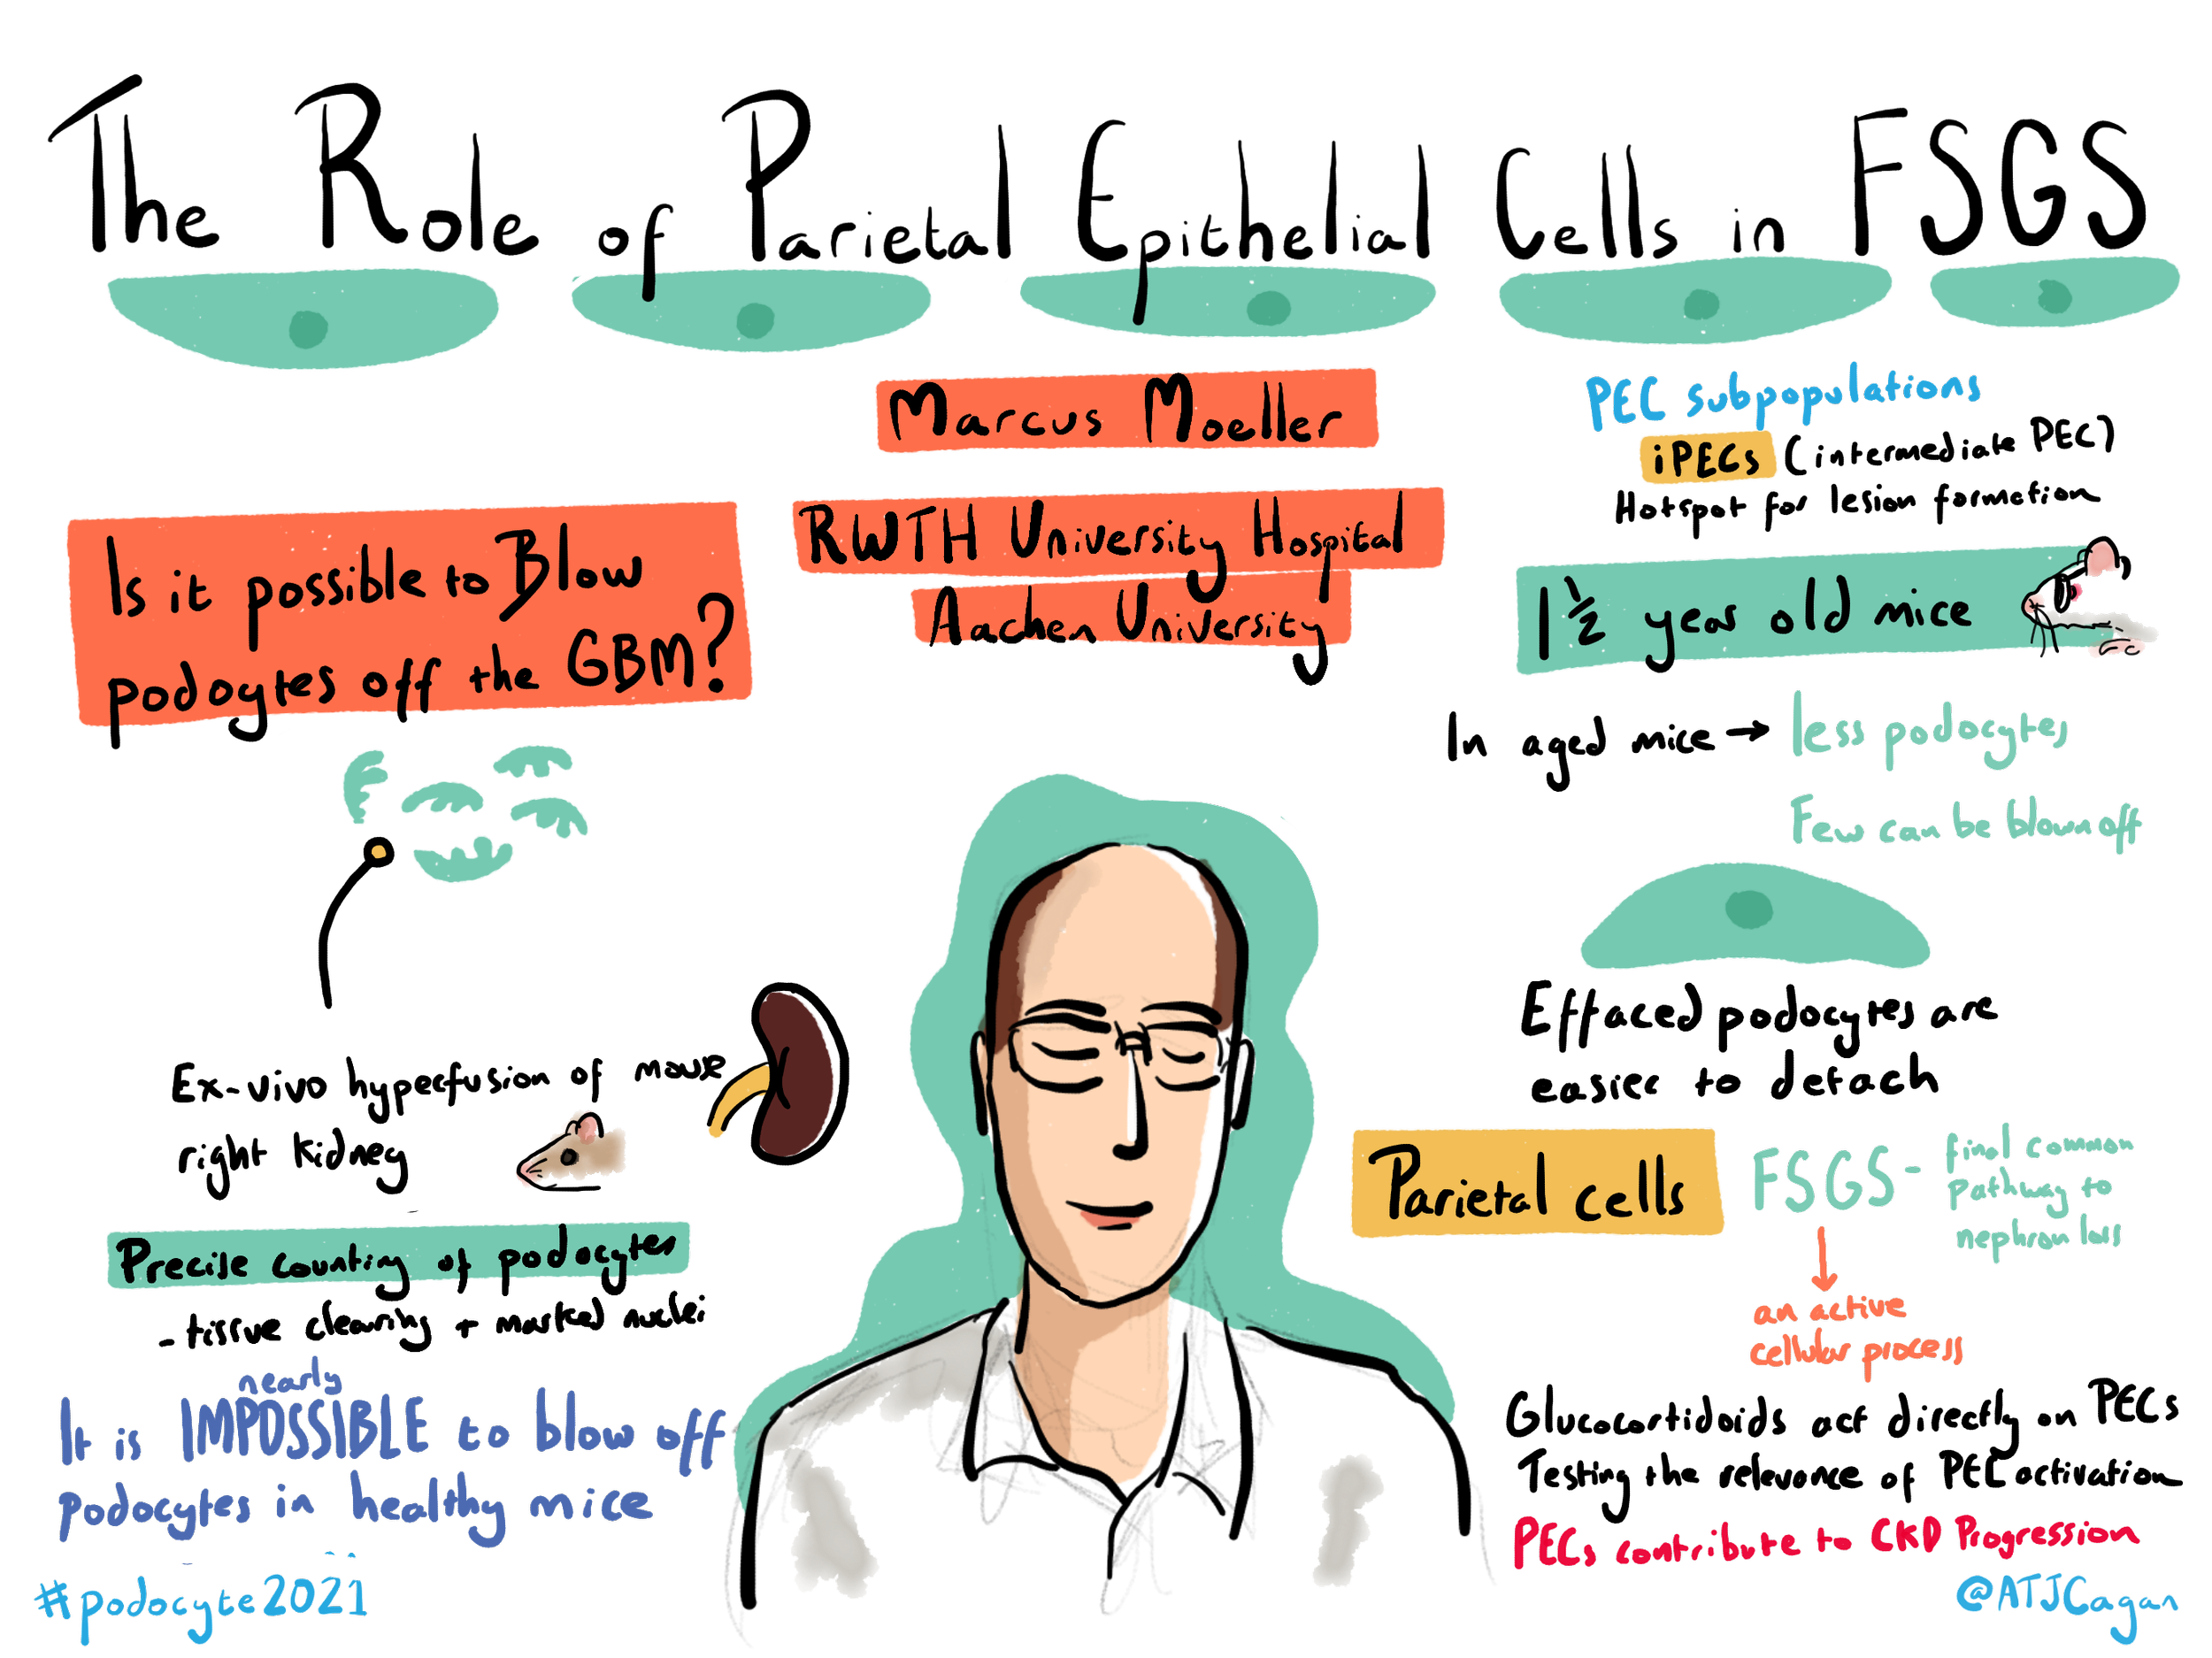 The Role of Parietal Epithelial Cells in FSGS
Marcus Moeller
RWTH University Hospital
Aachen University
Is it possible to Blow
podoytes off the GBM?
Ex-vivo hyperfusion of mouse
right kidney
Precise counting of podocytes
- tissue clearing + marked nuclei
nearly
It is IMPOSSIBLE to blow off
podocytes in healthy mice
#podocyte2021
PEC subpopulations
iPECs (intermediate PEC)
Hotspot for lesion formation
1 ½ year old mice
In aged mice → less podocytes
Few can be blown off
Effaced podocytes are
easier to detach
Parietal cells
FSGS - final common
pathway to
nephron loss
an active
cellular process
Glucocortidoids act directly on PECs
Testing the relevance of PEC activation
PECs contribute to CKD Progression
@ATJCagan